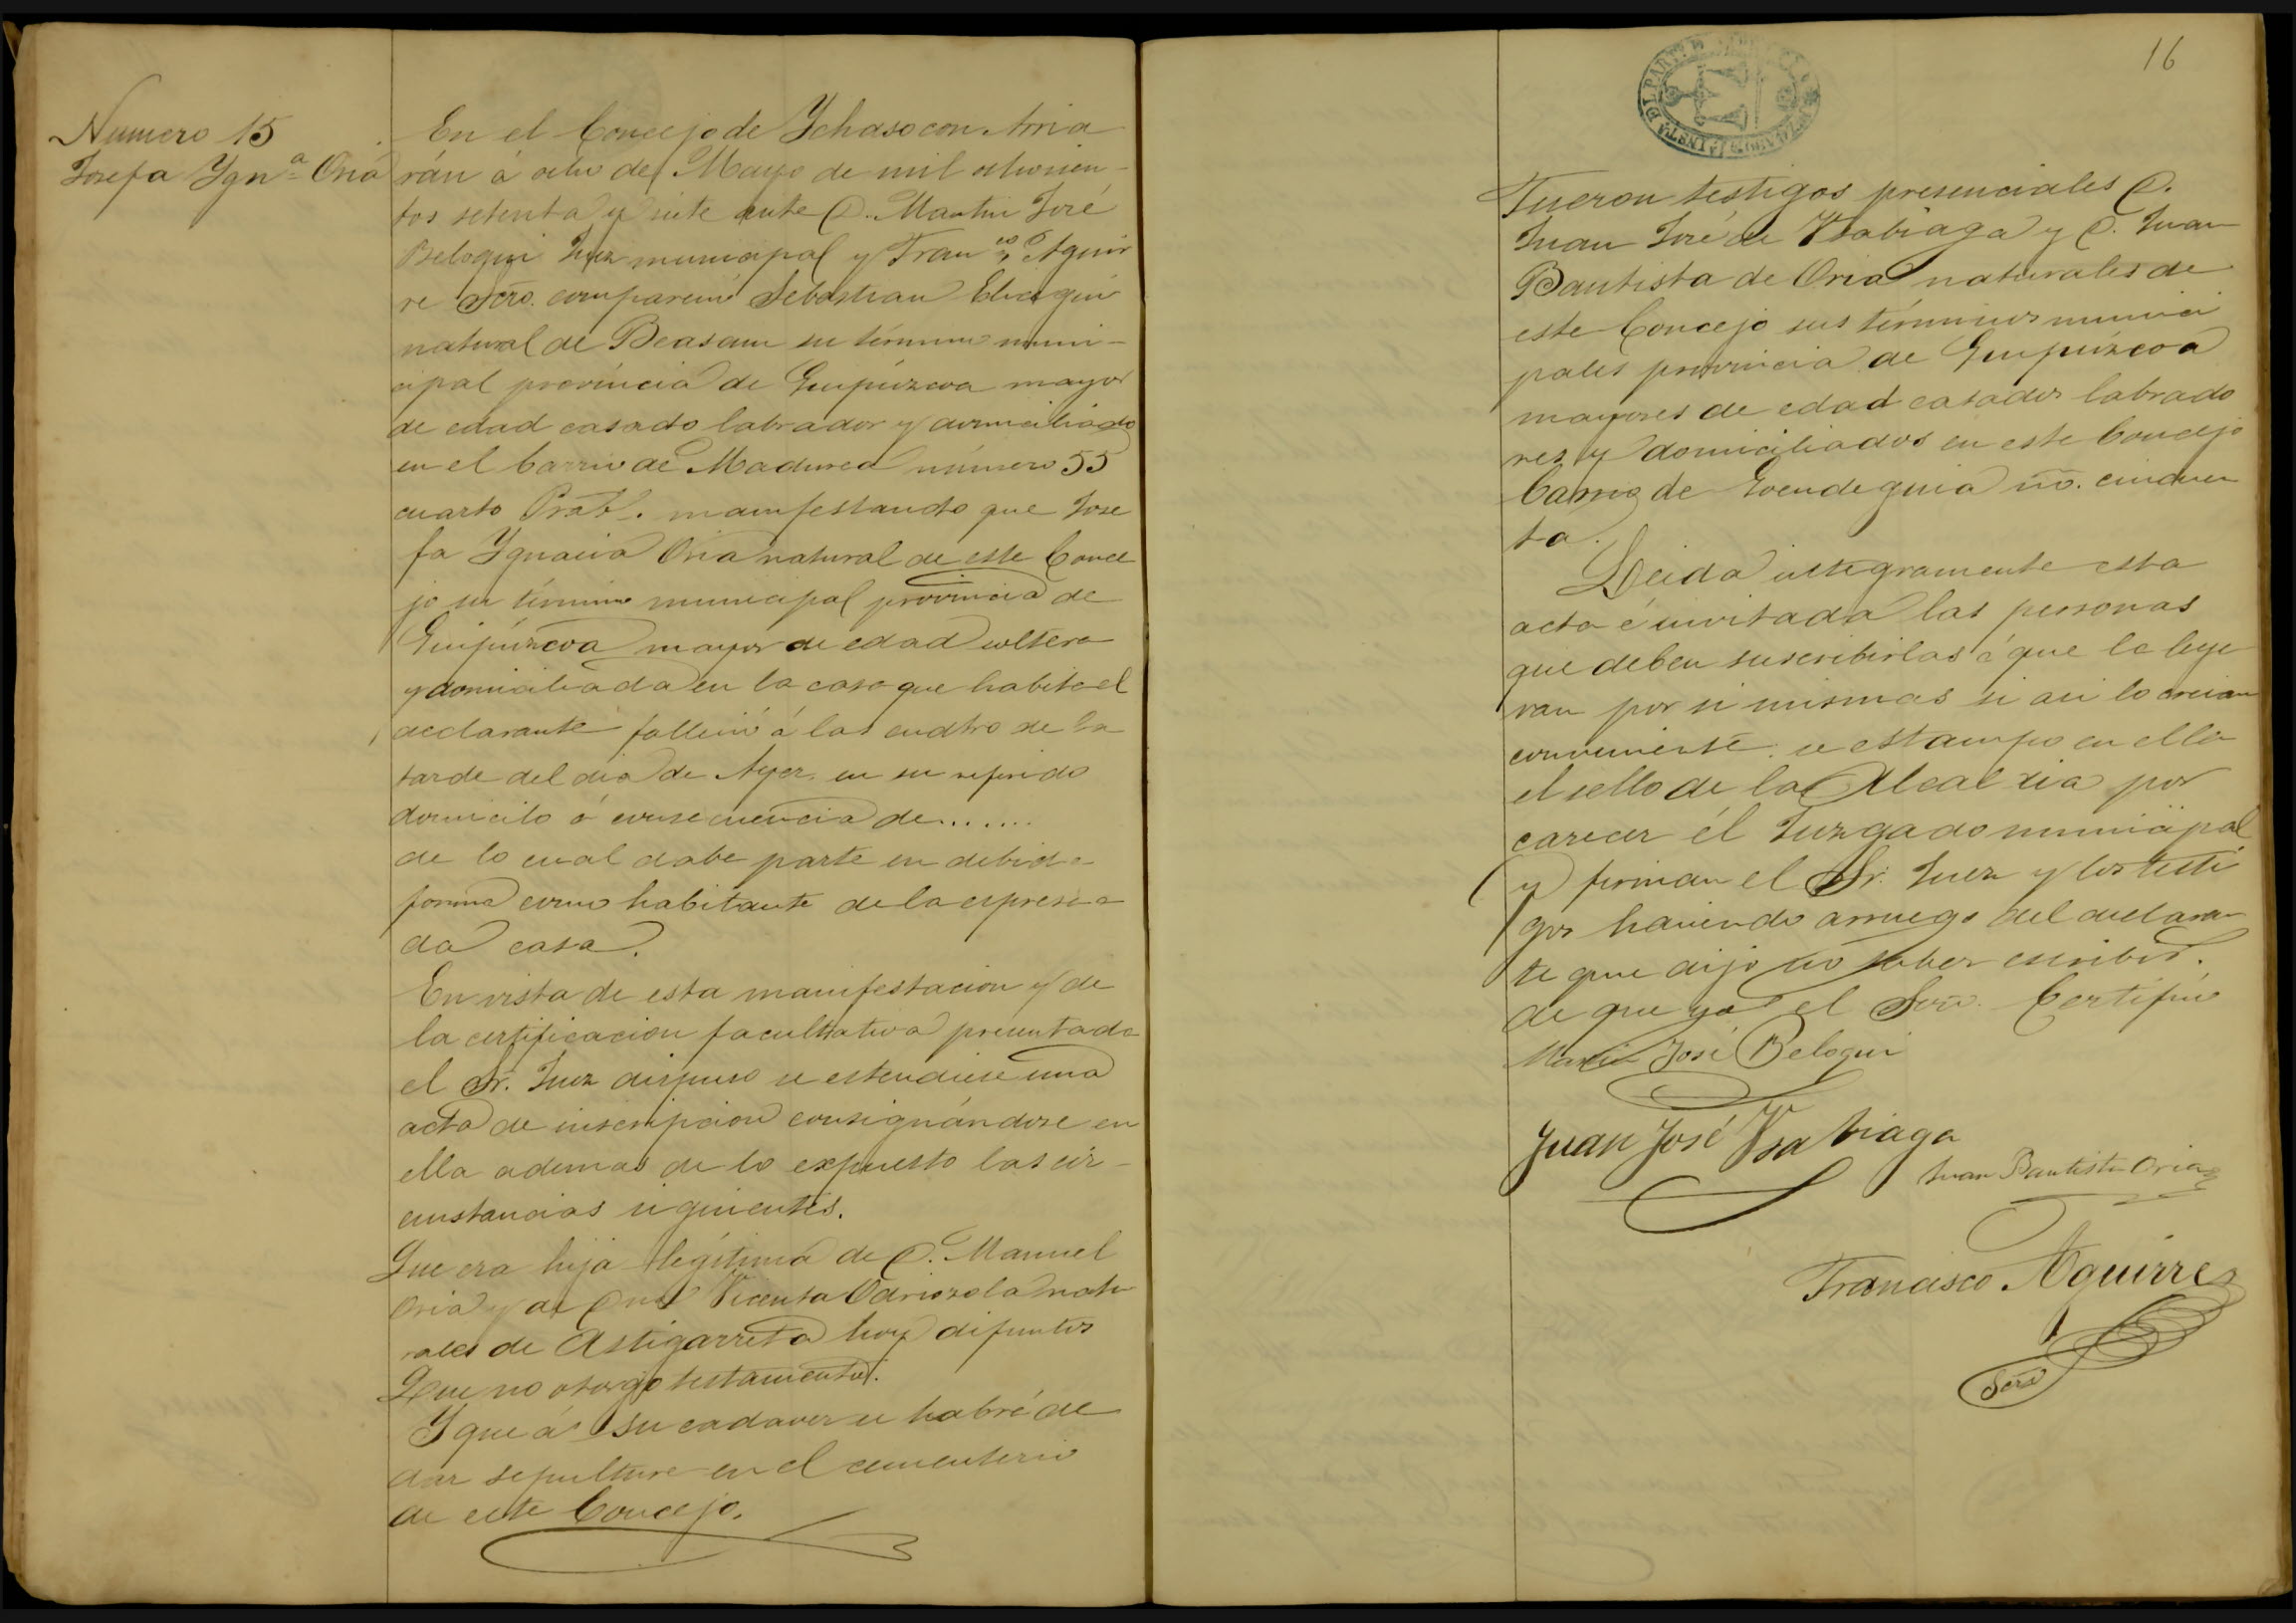 Numero 15
Josefa Ygn.ª Oria
En el Concejo de Ychaso con Arria
rán á ocho de Mayo de mil ochocien-
tos setenta y siete ante D. Martin José
Beloqui Juez municipal y Fran.co Aguir
re Scrio. compareció Sebastian
natural de Beasain su término muni-
cipal provincia de Guipúzcoa mayor
de edad casado labrador y domiciliado
en el barrio de Madurea número 55
cuarto Pral. manifestando que Jose
fa Ygnacia Oria natural de este Conce
jo su término municipal provincia de
Guipúzcoa mayor de edad soltera
y domiciliada en la casa que habita el
declarante falleció á las cuatro de la
tarde del dia de Ayer en su referido
domicilo á consecuencia de.......
de lo cual dabe parte en debida
forma como habitante de la espresa
da casa.
En vista de esta manifestacion y de
la certificacion facultativa presentada
el Sr. Juez dispuso se estendiese una
acta de inscripcion consignándose en
ella ademas de lo expuesto las cir-
cunstancias siguientes.
Que era hija legítima de D. Manuel
Oria y de Dña Vicenta Odriozola natu
rales de Astigarreta hoy difuntos
Que no otorgo testamento.
Y que á su cadaver se habré de
dar sepulture en el cementerio
de este Concejo.
16
Fueron testigos presenciales D.
Juan José de Ysabiaga y D. Juan
Bautista de Oria naturales de
este Concejo sus términos munici
pales provincia de Guipúzcoa
mayores de edad casados labrado
res y domiciliados en este Concejo
barrio de no. cincuen
ta.
Leida integramente esta
acta é invitada las personas
que deben suscribirlas á que la leye
ran por si mismas si asi lo creian
conveniente se estampo en ella
el sello de la Alcaldia por
carecer él Juzgado municipal
y firman el Sr. Juez y los testi
gos haciendo arruego del declaran
te que dijo no saber escribir.
de que yo el Scrio. Certifico
Martin José Beloqui
Juan José Ysabiaga
Juan Bautista Oria
Francisco Aguirre
Scrio